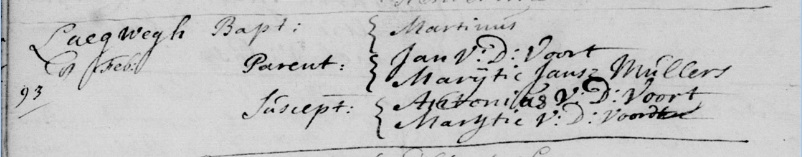 Laegwegh Bapt: { Martinus
8 Feb: Parent: { Jan V: D: Voort
Marytie Jans: Mullers
93 Suscept: { Antonius V: D: Voort
Marytie V: D: Voordt